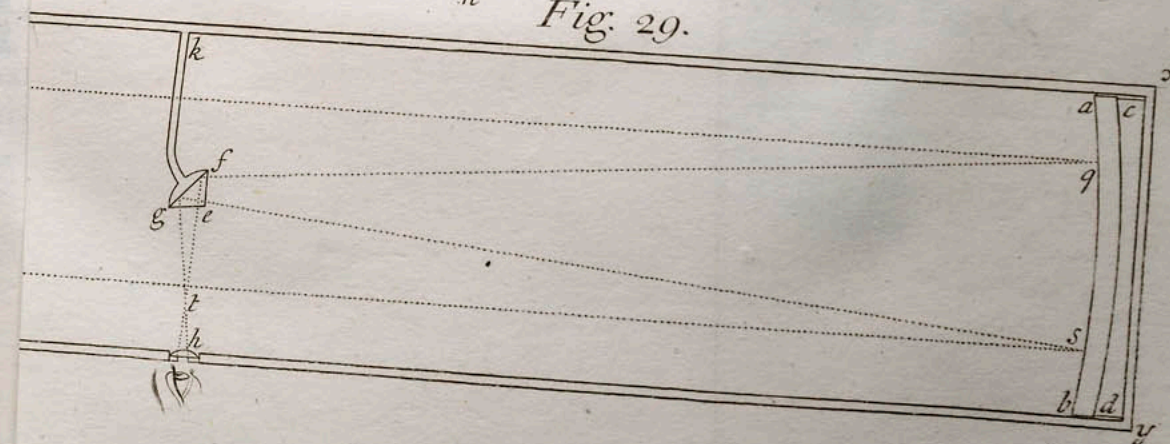 Fig. 29.
k
a c
f
q
g e
t
s
h
b d
y